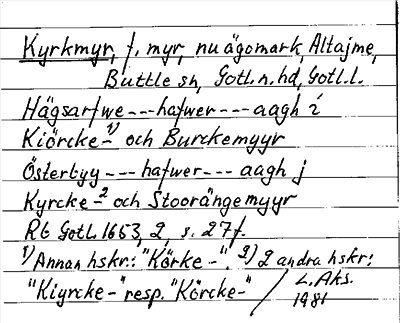 Kyrkmyr, f. myr, nu ägomark, Altajme,
Buttle sn, Gotl. n. hd, Gotl. l.
Hägsarfwe --- hafwer --- aagh i
Kiörcke- 1) och Burckemyyr
Österbyy --- hafwer --- aagh j
Kyrcke- 2 och Stoorängemyyr
Rb Gotl. 1653, 2, s. 27f.
1) Annan hskr.: "Körke -". 2) 2 andra hskr:
"Kiyrcke-" resp. "Körcke-" / L. Aks.
1981